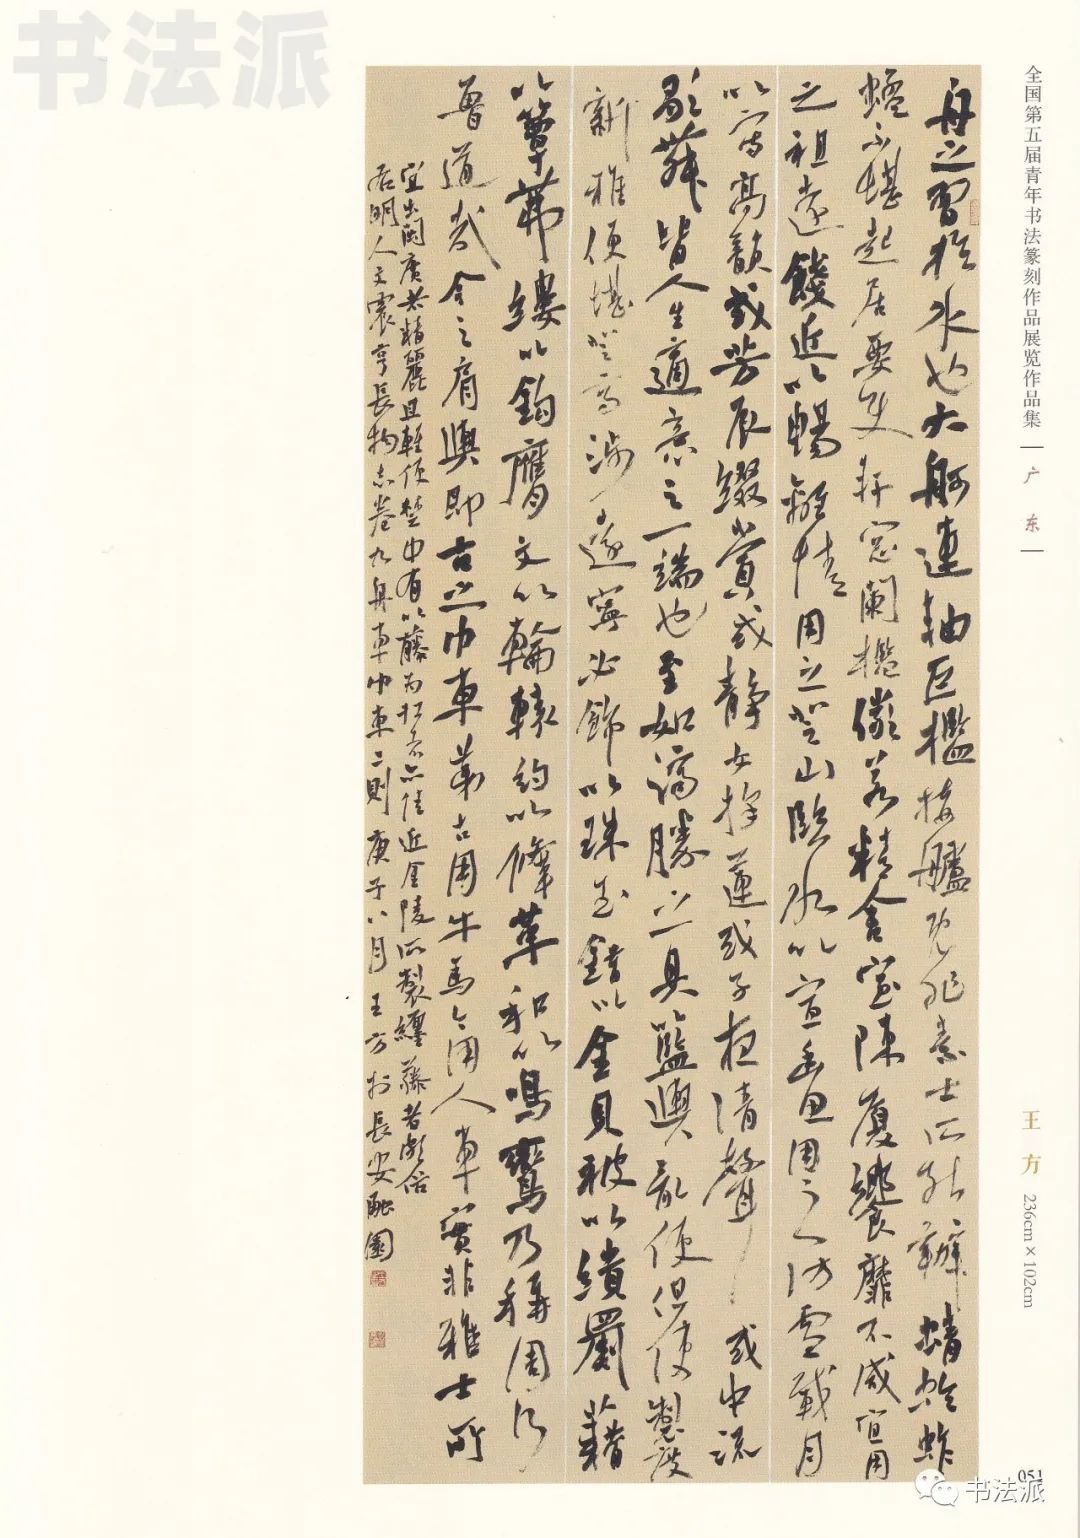 书法派
全国第五届青年书法篆刻作品展览作品集
广东
王方 236cm×102cm
舟之習於水也大舸連軸巨檻接艫既非素士所能辦蜻蛉蚱
不堪起居要使軒窓闌檻儼若精舍室陳廈饗靡不咸宜用
之祖遠餞近以暢離情用之登山臨水以宣幽思用之訪雪載月
以寫高韻或芳辰綴賞或靜女採蓮或子夜清聲或中流
歌舞皆人生適意之一端也至如濟勝之具籃輿最便但使製度
新雅便堪登高涉遠寧必飾以珠玉錯以金貝被以繢罽藉
以簟茀縷以鉤膺文以輪轅約以鞗革和以鳴鸞乃稱周行
魯道哉今之肩輿即古之巾車第古用牛馬今用人車實非雅士所
宜出閩廣者精麗且輕便楚中有以藤為扛者亦佳近金陵所製纏藤者頗俗
右明人文震亨長物志卷九舟車巾車二則庚子八月王方於長安融園
051
书法派